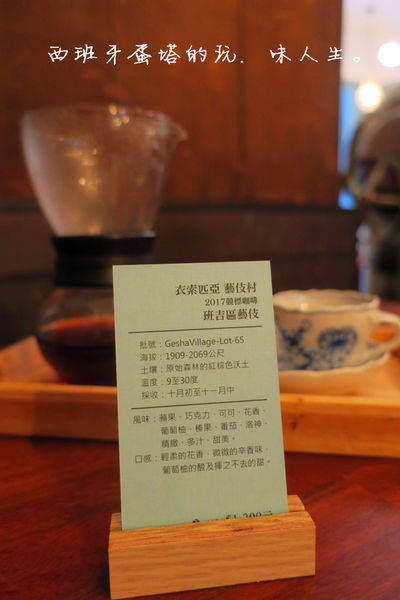 西班牙蛋塔的玩．味人生。
衣索匹亞 藝伎村
2017競標咖啡
班吉區藝伎
批號：GeshaVillage-Lot-65
海拔：1909-2069公尺
土壤：原始森林的紅棕色沃土
溫度：9至30度
採收：十月初至十一月中
風味：蘋果、巧克力、可可、花香、
葡萄柚、榛果、番茄、洛神、
精緻、多汁、甜美。
口感：輕柔的花香，微微的辛香味，
葡萄柚的酸及揮之不去的甜。